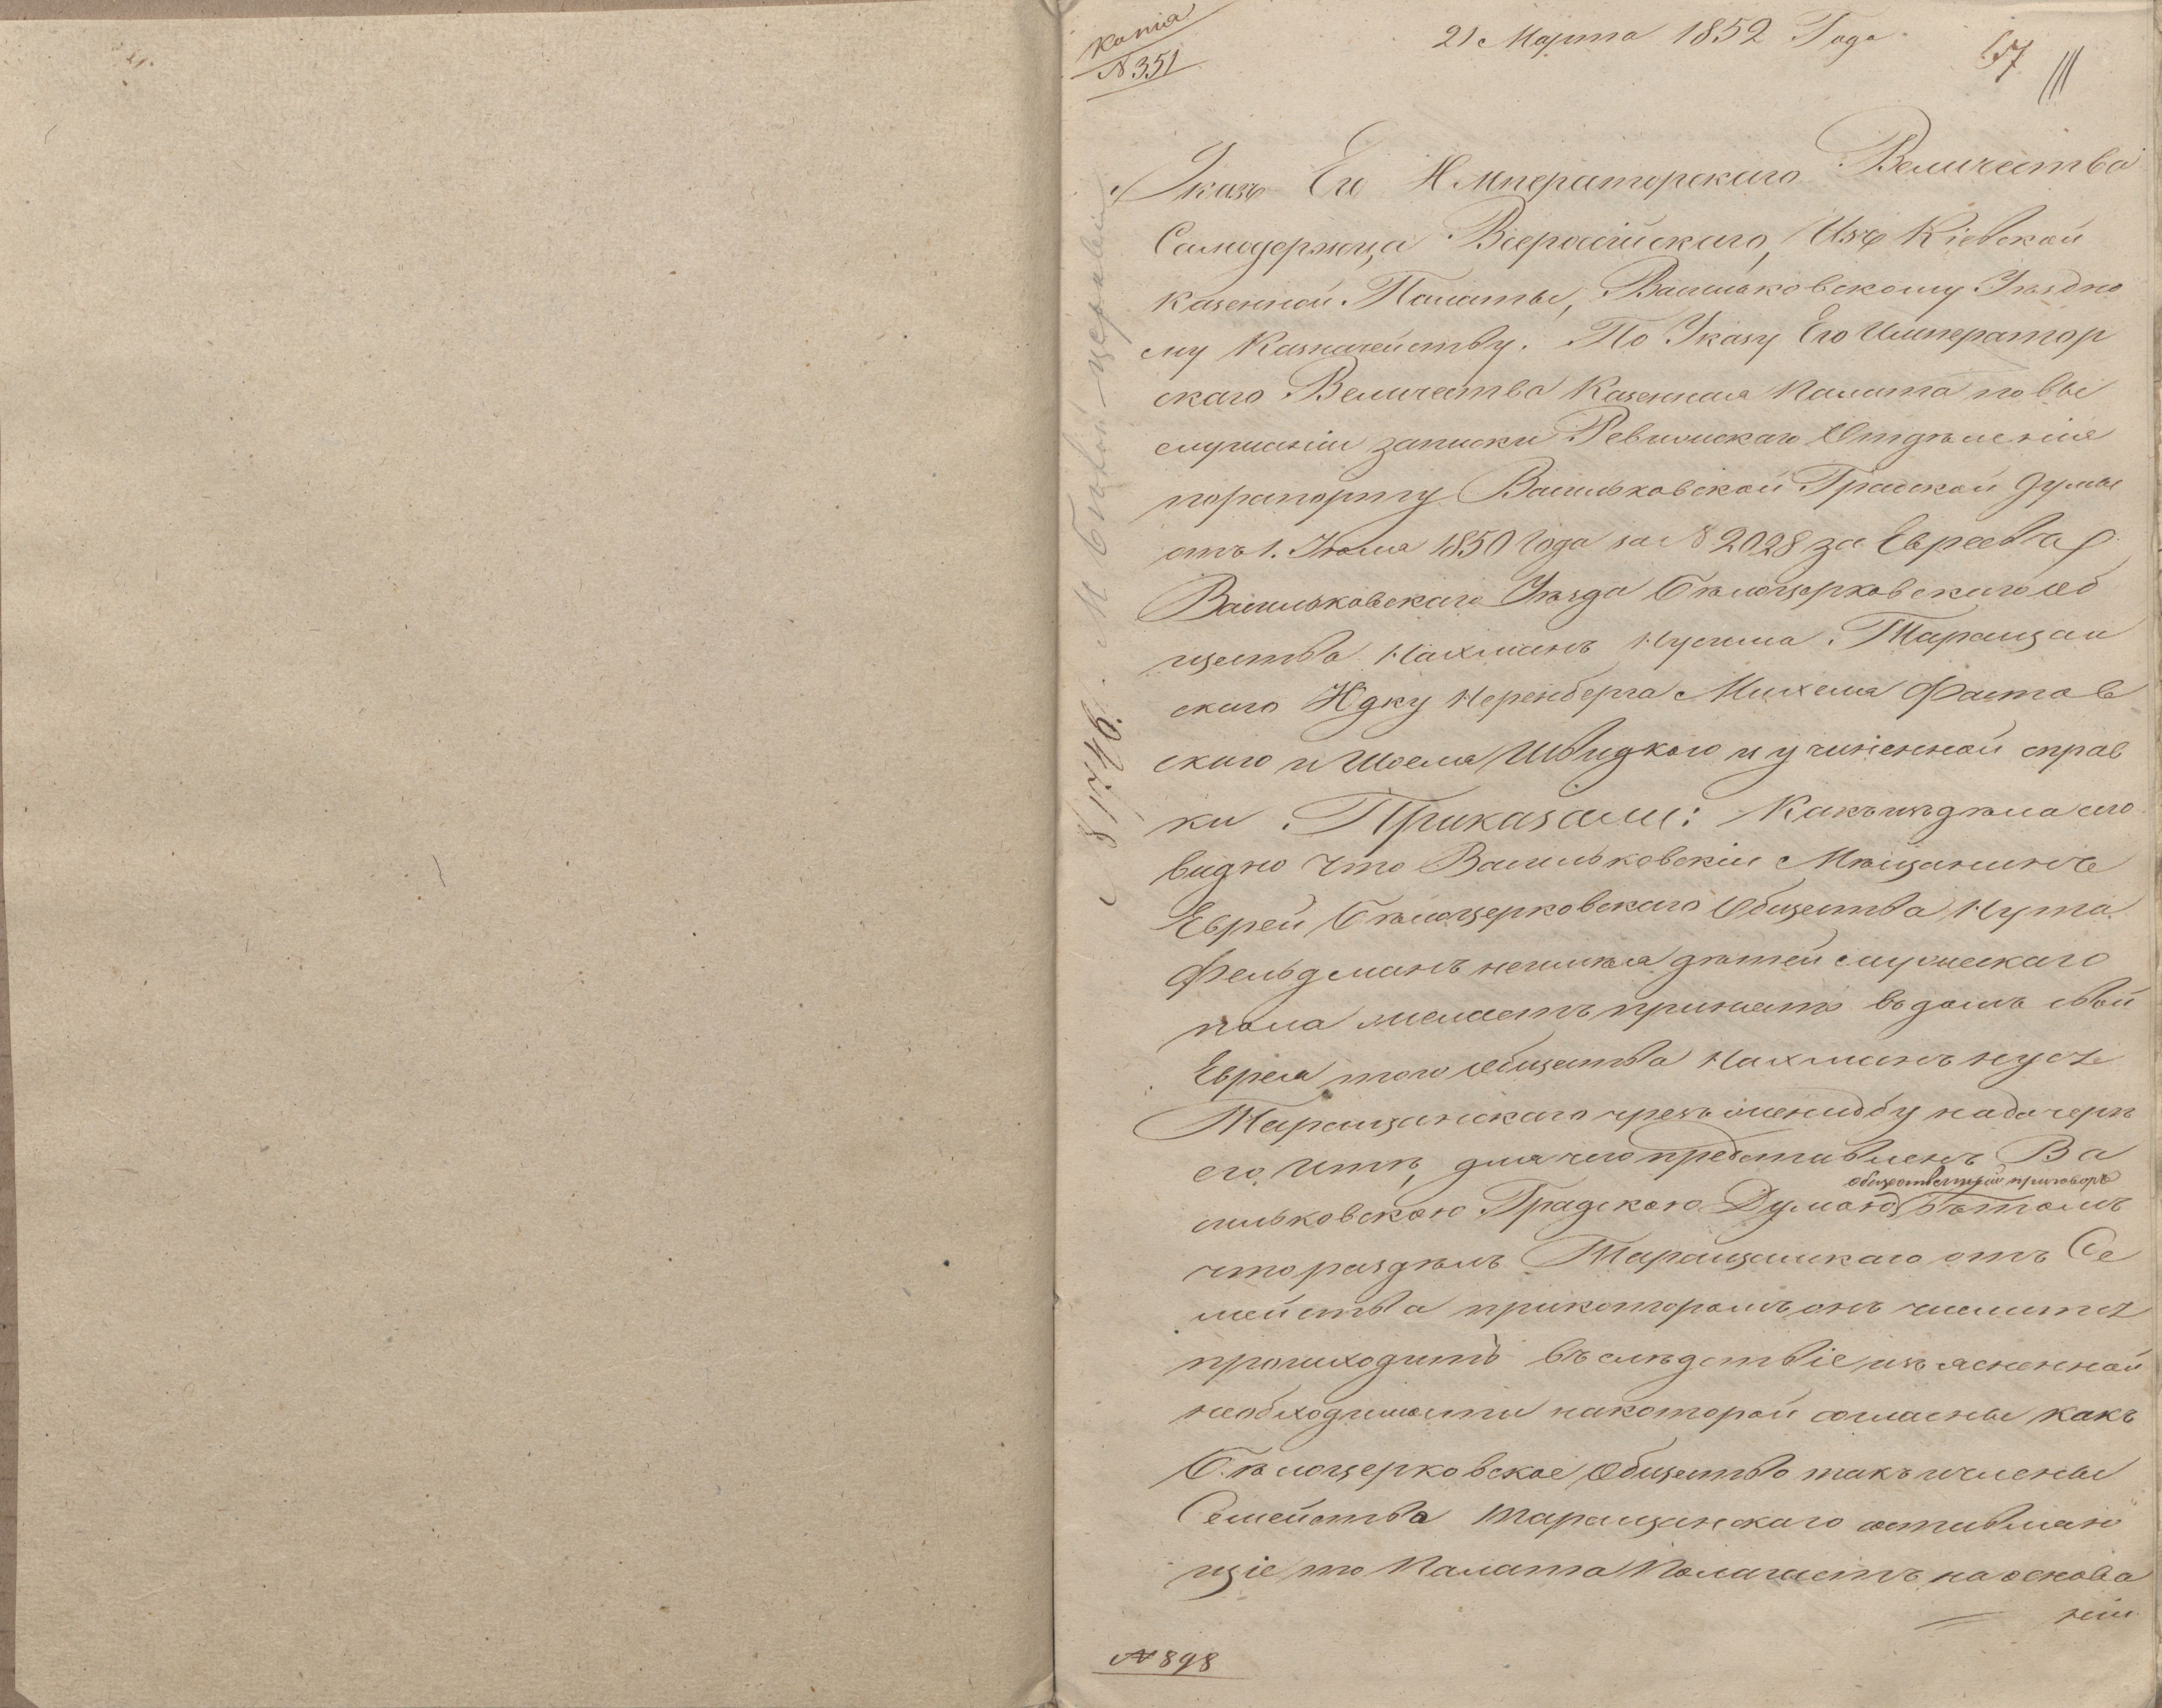 Копія
№ 351
21 Марта 1852 Года
57
Указъ Его Императорскаго Величества
Самодержца Всероссійскаго, Изъ Кіевской
Казенной Палаты, Васильковскому Уѣздно
му Казначейству. По Указу Его Император
скаго Величества Казенная Палата по вы
слушаніи записки Ревизскаго Отдѣленія
порапорту Васильковской Градской Думы
отъ 1. Іюля 1850 Года за № 2028 за Евреевъ
Васильковскаго Уѣзда Бѣлоцерковскаго об
щества Нахманъ Нусина Таращан
скаго Юдку Неренберга Михеля Фастов
скаго и Шоеля Швидкого и учиненной справ
ки Приказали: Какъ изъ дѣла сего
видно что Васильковскій Мѣщанинъ
Еврей Бѣлоцерковскаго Общества Нута
Фельдманъ неимѣя дѣтей мужескаго
пола желаетъ принять въ домъ свой
Еврея того Общества Нахманъ Нуся
Таращанскаго чрезъ женидбу на дочерѣ
его Итѣ, для чего представленъ Ва
общественный приговоръ
сильковскою Градскою Думою въ томъ
что раздѣлъ Таращанскаго отъ Се
мейства прикоторомъ онъ числится
происходитъ въ слѣдствіе изъясненной
необходимости накоторой согласны какъ
Бѣлоцерковское Общество такъ и члены
Семейства Таращанскаго оставляю
щіе то Палата Полагаетъ на основа
ніи
№ 898